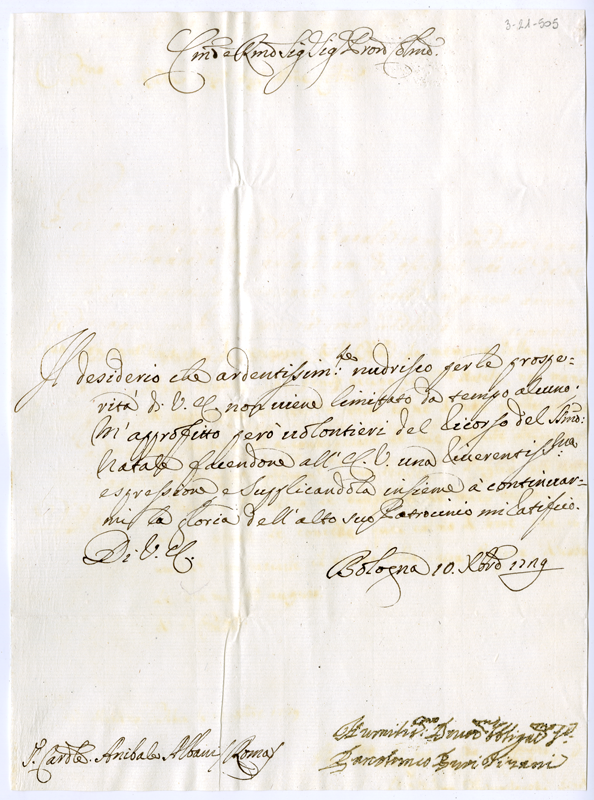 3-21-505
Emo e Rmo Sig Sig Pron Colmo
Il desiderio che ardentissim.te nudrisco per le prospe-
rità di V. E. non viene limitato da tempo alcuno:
M'approfitto però volontieri del ricorso del Smo:
Natale facendone all' E. V. una riverentiss.ma
espressione e supplicandola insieme à continuar-
mi la gloria dell' alto suo Patrocinio mi ratifico.
Di V. E.
Bologna 10. Xbre 1719
Sr Cardle. Anibale Albani (Roma)
Humiliss.mo Devmo Obligmo